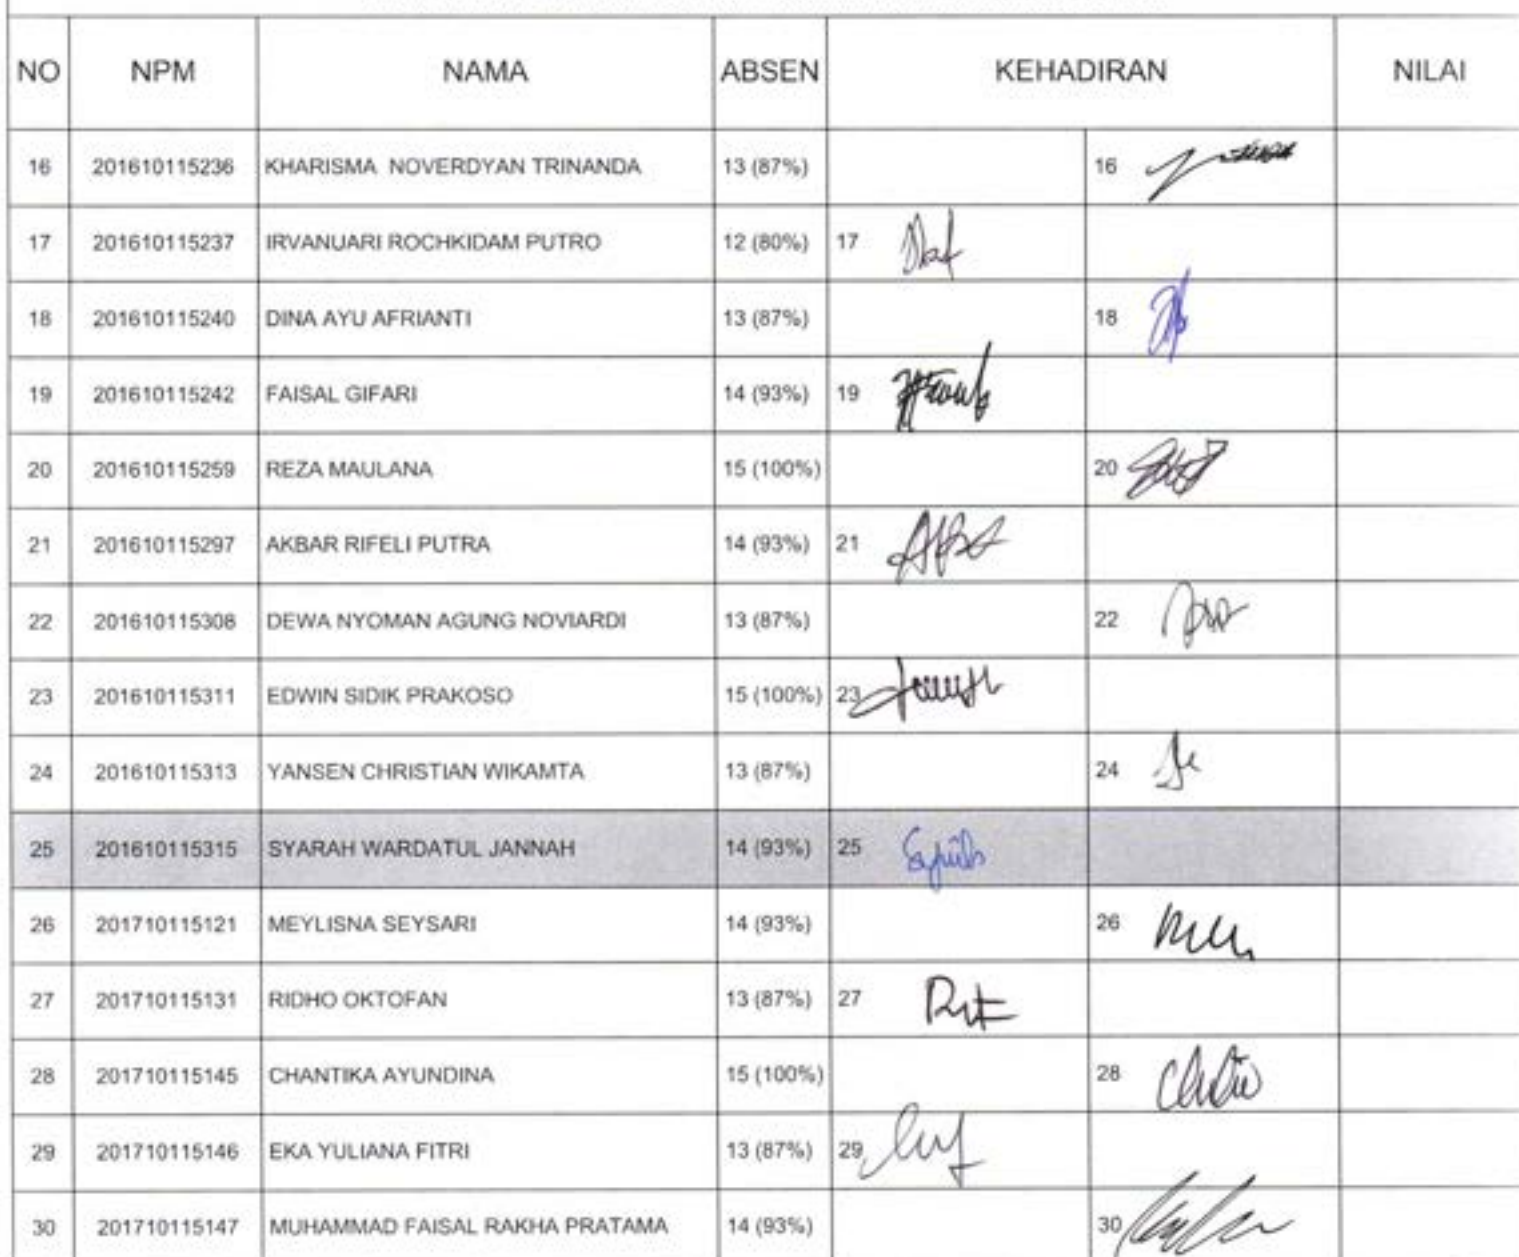 NO NPM NAMA ABSEN KEHADIRAN NILAI
16 201610115236 KHARISMA NOVERDYAN TRINANDA 13 (87%) 16
17 201610115237 IRVANUARI ROCHKIDAM PUTRO 12 (80%) 17
18 201610115240 DINA AYU AFRIANTI 13 (87%) 18
19 201610115242 FAISAL GIFARI 14 (93%) 19
20 201610115259 REZA MAULANA 15 (100%) 20
21 201610115297 AKBAR RIFELI PUTRA 14 (93%) 21
22 201610115308 DEWA NYOMAN AGUNG NOVIARDI 13 (87%) 22
23 201610115311 EDWIN SIDIK PRAKOSO 15 (100%) 23
24 201610115313 YANSEN CHRISTIAN WIKAMTA 13 (87%) 24
25 201610115315 SYARAH WARDATUL JANNAH 14 (93%) 25
26 201710115121 MEYLISNA SEYSARI 14 (93%) 26
27 201710115131 RIDHO OKTOFAN 13 (87%) 27
28 201710115145 CHANTIKA AYUNDINA 15 (100%) 28
29 201710115146 EKA YULIANA FITRI 13 (87%) 29
30 201710115147 MUHAMMAD FAISAL RAKHA PRATAMA 14 (93%) 30